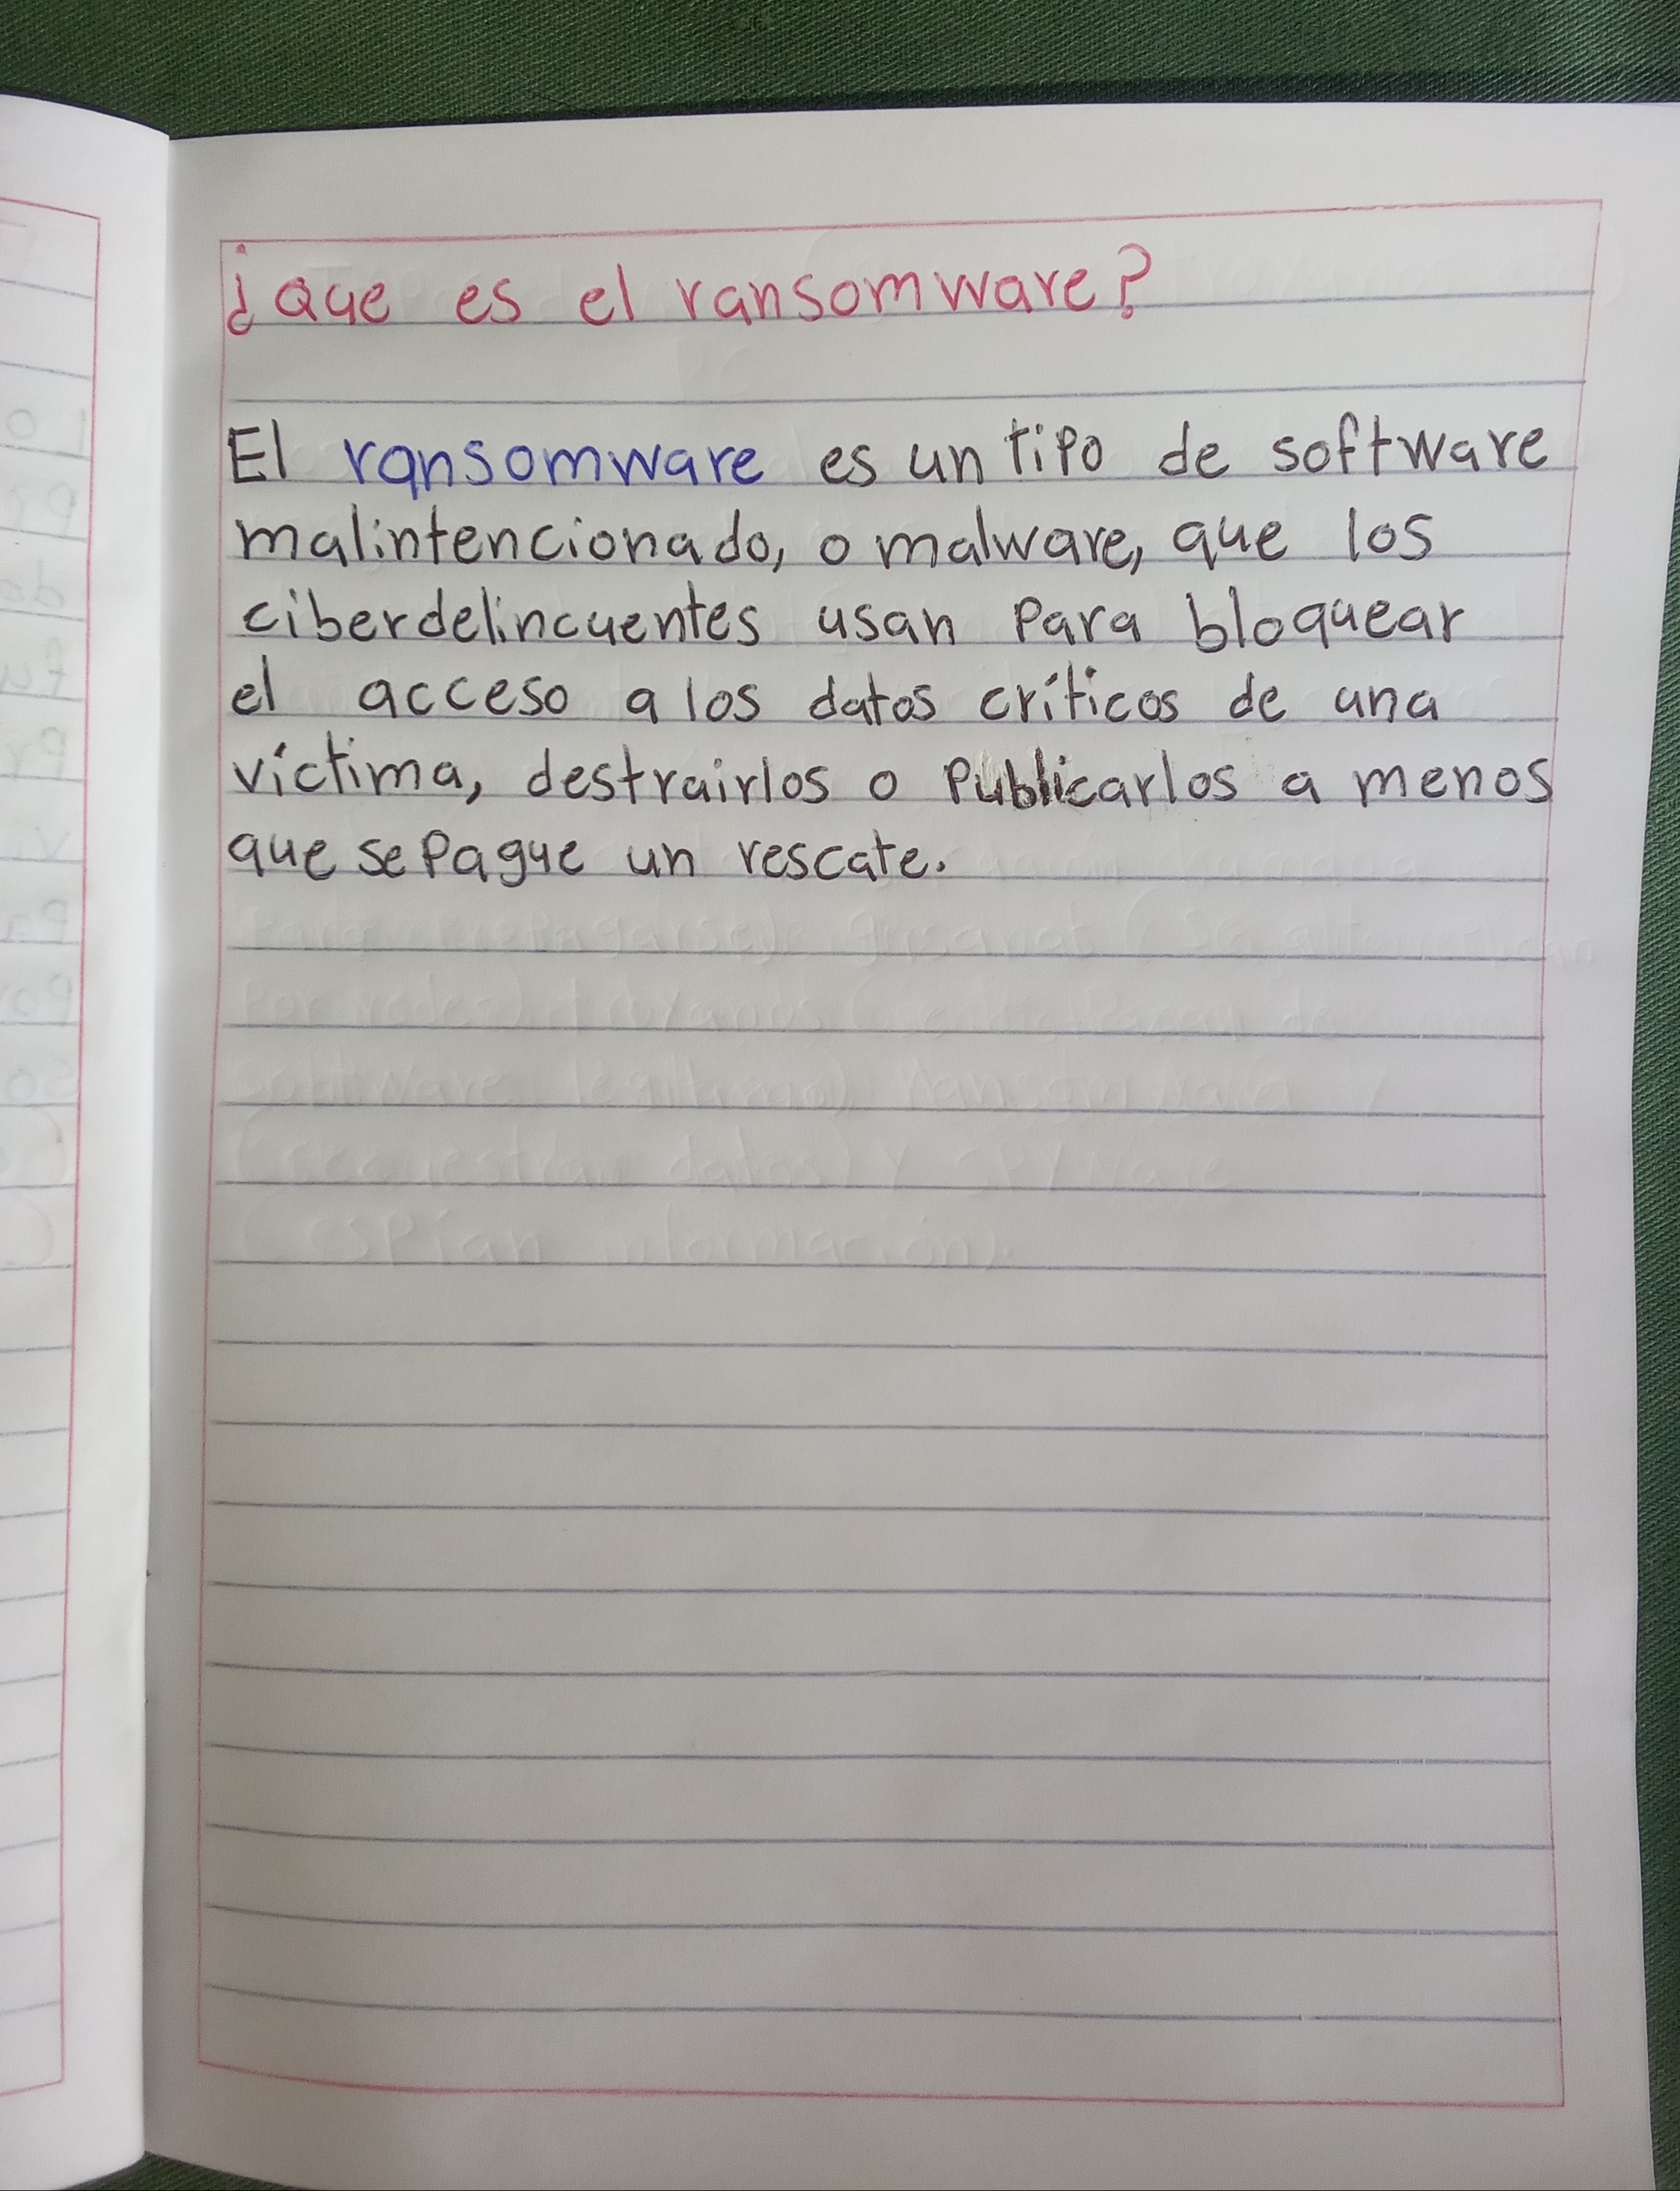 ¿Que es el ransomware?
El ransomware es un tipo de software
malintencionado, o malware, que los
ciberdelincuentes usan para bloquear
el acceso a los datos críticos de una
víctima, destruirlos o Publicarlos a menos
que se Pague un rescate.